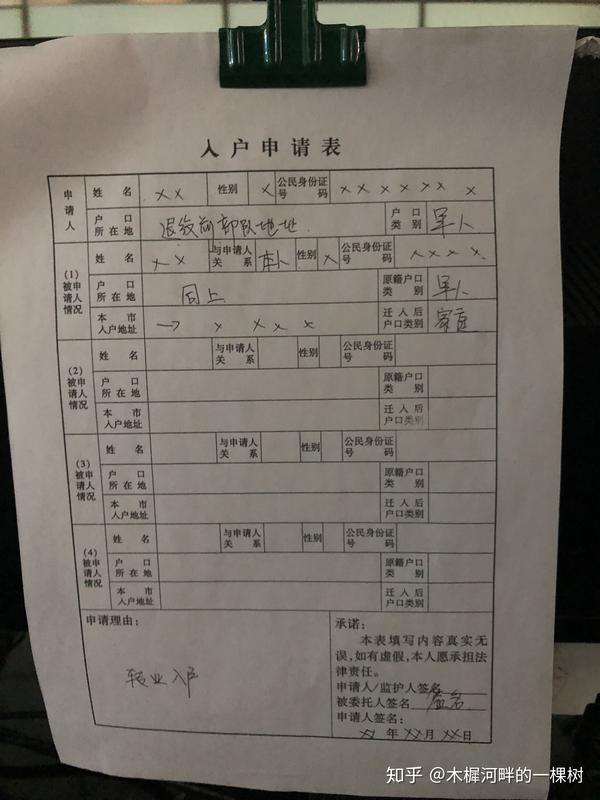 入户申请表
申请人 姓名 ×× 性别 × 公民身份证号码 ×××××× ×
户口所在地 退役前部队地址 户口类别 军人
(1)被申请人情况 姓名 ×× 与申请人关系 本人 性别 × 公民身份证号码 ××××
户口所在地 同上 原籍户口类别 军人
本市入户地址 → × × × × 迁入后户口类别 家庭
(2)被申请人情况 姓名 与申请人关系 性别 公民身份证号码
户口所在地 原籍户口类别
本市入户地址 迁入后户口类别
(3)被申请人情况 姓名 与申请人关系 性别 公民身份证号码
户口所在地 原籍户口类别
本市入户地址 迁入后户口类别
(4)被申请人情况 姓名 与申请人关系 性别 公民身份证号码
户口所在地 原籍户口类别
本市入户地址 迁入后户口类别
申请理由:
转业入户
承诺:
本表填写内容真实无
误,如有虚假,本人愿承担法
律责任。
申请人/监护人签名
被委托人签名 签名
申请人签名:
×× 年 ×× 月 ×× 日
知乎 @木樨河畔的一棵树